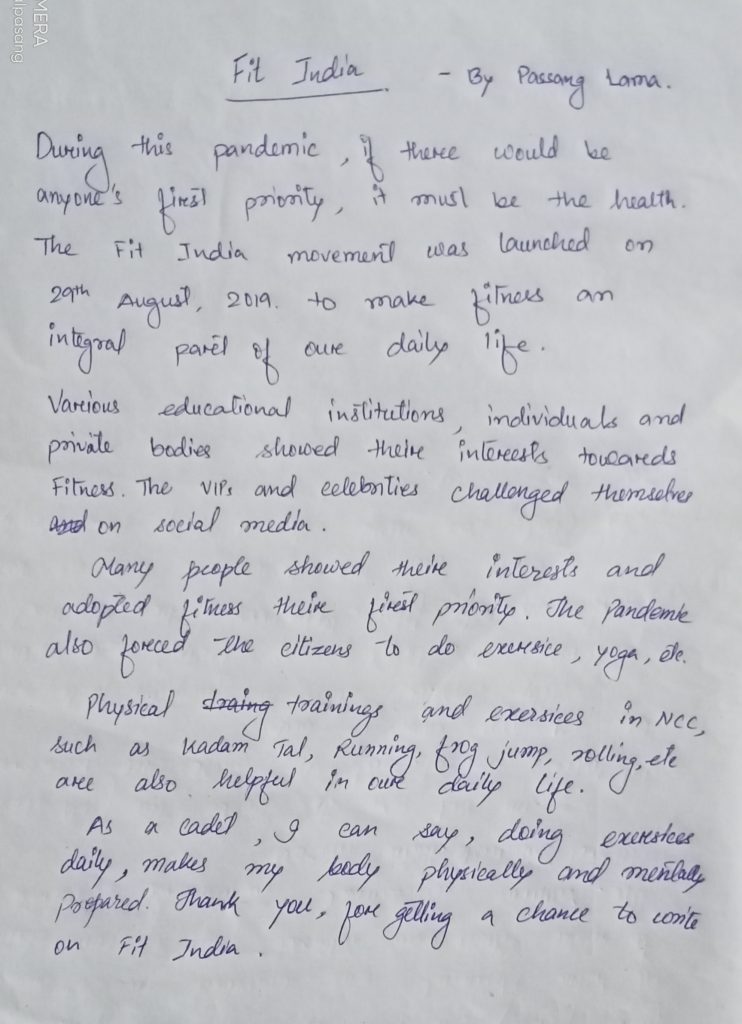 MERA
lipasang
Fit India - By Passang Lama.
During this pandemic, if there would be
anyone's first priority, it must be the health.
The Fit India movement was launched on
29th August, 2019. to make fitness an
integral part of our daily life.
Various educational institutions, individuals and
private bodies showed their interests towards
Fitness. The VIPs and celebrities challenged themselves
and on social media.
Many people showed their interests and
adopted fitness their first priority. The Pandemic
also forced the citizens to do exersice, yoga, etc.
Physical traing trainings and exersices in NCC,
such as Kadam Tal, Running, frog jump, rolling, etc
are also helpful in our daily life.
As a cadet, I can say, doing exersices
daily, makes my body physically and mentally
prepared. Thank you, for getting a chance to write
on Fit India.